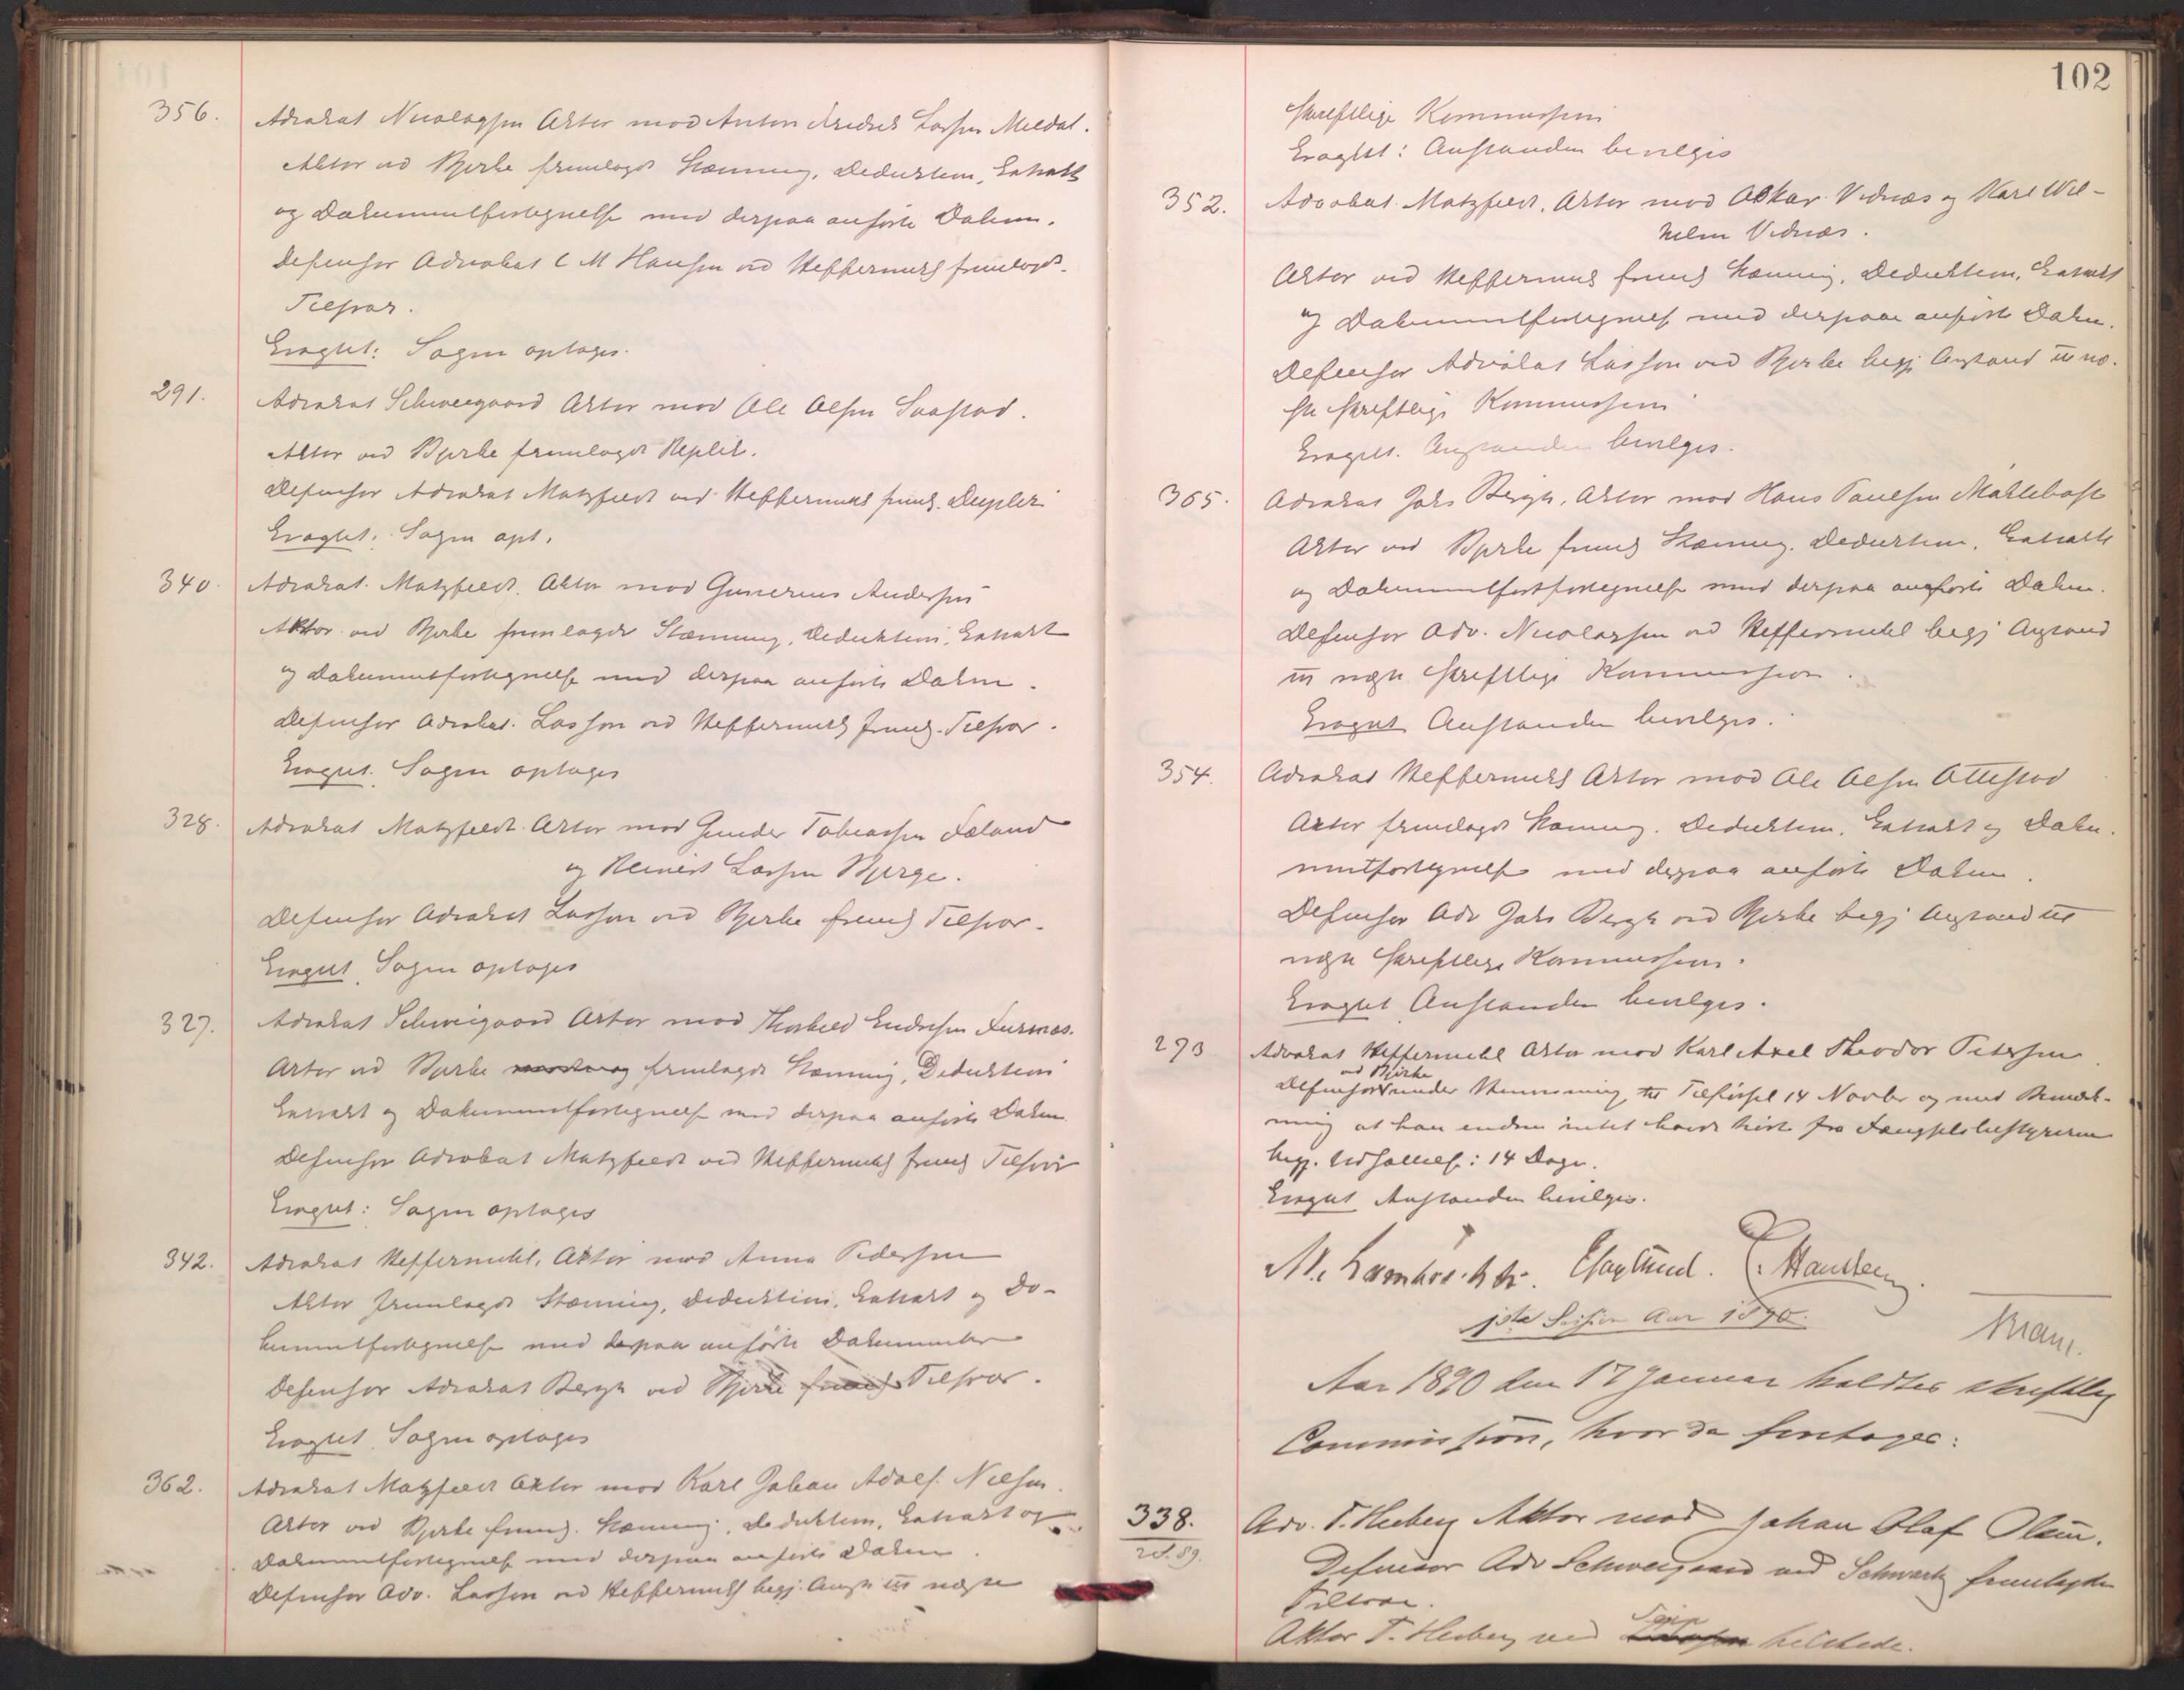 356. Advokat Nicolaysen Aktor mod Anton Fredrik Larsen Meldal.
Aktor ved Bjerke fremlagde Stævning, Deduktion, Extrakt
og Dokumentfortegnelse med derpaa anførte Dokum.
Defensor Advokat C M Hansen ved Heffermehl fremlagde
Tilsvar.
Eragtet: Sagen optages.
291. Advokat Schweigaard Aktor mod Ole Olsen Saastad.
Aktor ved Bjerke fremlagde Replik.
Defensor Advokat Matzfeldt ved Heffermehl freml. Duplik
Eragtet: Sagen opt.
340. Advokat Matzfeldt Aktor mod Gunerius Andersen
Aktor ved Bjerke fremlagde Stævning, Deduktion, Extrakt
og Dokumentfortegnelse med derpaa anførte Dokum.
Defensor Advokat Lasson ved Heffermehl freml. Tilsvar.
Eragtet. Sagen optages
328. Advokat Matzfeldt Aktor mod Gunder Tobiassen Føland
og Reinert Larsen Bjerge.
Defensor Advokat Lasson ved Bjerke freml Tilsvar.
Eragtet. Sagen optages
327. Advokat Schweigaard Aktor mod Thorkild Endresen Furenæs.
Aktor ved Bjerke fremlagde Stævning, Deduktion
Extrakt og Dokumentfortegnelse med derpaa anførte Dokum
Defensor Advokat Matzfeldt ved Heffermehl freml Tilsvar
Eragtet: Sagen optages
342. Advokat Heffermehl, Aktor mod Anna Pedersen
Aktor fremlagde Stævning, Deduktion, Extrakt og Do-
kumentfortegnelse med derpaa anførte Dokumenter
Defensor Advokat Bergh ved Bjerke freml Tilsvar.
Eragtet. Sagen optages
362. Advokat Matzfeldt Aktor mod Karl Johan Adolf Nilsen.
Aktor ved Bjerke freml. Stævning, Deduktion, Extrakt og
Dokumentfortegnelse med derpaa anførte Dokum.
Defensor Adv. Lasson ved Heffermehl begj. Anst. til næste
102
skriftlige Kommission
Eragtet: Anstanden bevilges
352. Advokat Matzfeldt, Aktor mod Oskar Vidnæs og Karl Wil-
helm Vidnæs.
Aktor ved Heffermehl freml Stævning, Deduktion, Extrakt
og Dokumentfortegnelse med derpaa anførte Dokum.
Defensor Advokat Lasson ved Bjerke begj Anstand til næ-
ste skriftlige Kommission
Eragtet. Anstanden bevilges.
365. Advokat Johs Bergh, Aktor mod Hans Paulsen Maklebost
Aktor ved Bjerke freml Stævning, Deduktion, Extrakt
og Dokumentfortfortegnelse med derpaa anførte Dokum.
Defensor Adv. Nicolaysen ved Heffermehl begj Anstand
til næste skriftlige Kommission.
Eragtet Anstanden bevilges.
354. Advokat Heffermehl Aktor mod Ole Olsen Ottestad
Aktor fremlagde Stævning, Deduktion, Extrakt og Doku-
mentfortegnelse med derpaa anførte Dokum.
Defensor Adv Johs Bergh ved Bjerke begj Anstand til
næste skriftlige Kommission.
Eragtet Anstanden bevilges.
293 Advokat Heffermehl Aktor mod Karl Axel Theodor Petersen
ved Bjerke
Defensor under Henvisning til Tilførsel 14 Novbr og med Bemærk-
ning at han endnu intet havde hørt fra Fængselsbestyreren
begj. Udsættelse: 14 Dage.
Eragtet Anstanden bevilges.
Hansteen
1ste Session Aar 1890.
Aar 1890 den 17 Januar holdtes skriftlig
Commission, hvor da foretoges:
338.
2d. 89.
Adv. T. Heiberg Aktor mod Johan Olaf Olsen.
Defensor Adv Schweigaard ved Schwartz fremlagde
Tilsvar.
Aktor T. Heiberg ved tilstede.